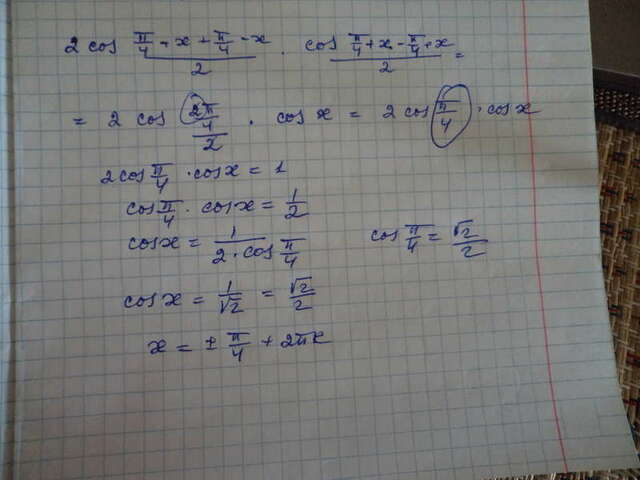 2 cos (π/4 + x + π/4 - x)/2 · cos (π/4 + x - π/4 + x)/2 =
= 2 cos (2π/4)/2 · cos x = 2 cos π/4 · cos x
2 cos π/4 · cos x = 1
cos π/4 · cos x = 1/2
cos x = 1/(2 · cos π/4) cos π/4 = √2/2
cos x = 1/√2 = √2/2
x = ± π/4 + 2πk